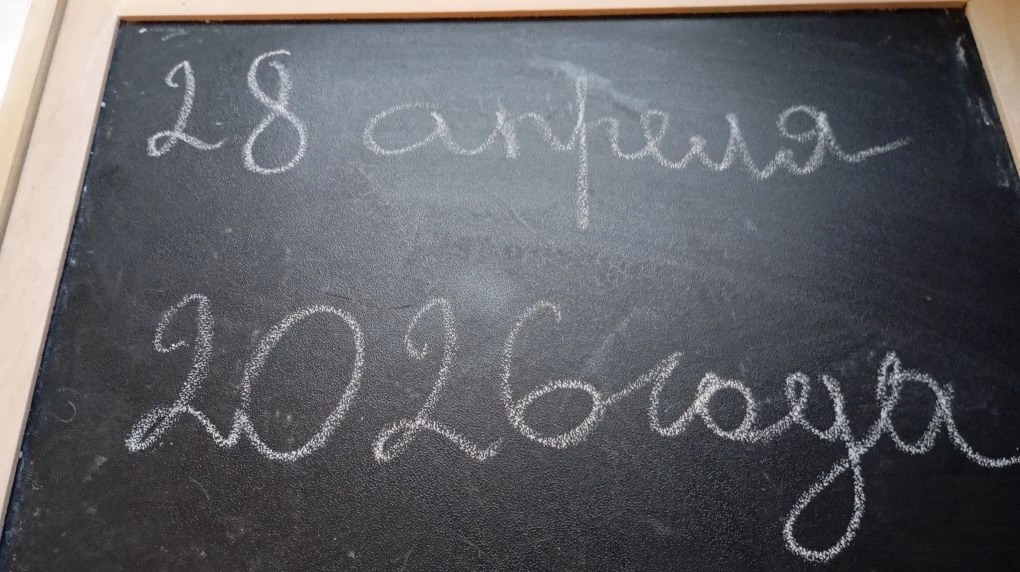 28 апреля
2026 года